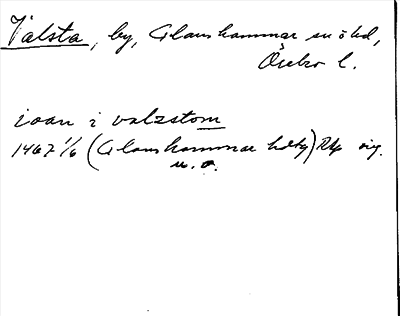 Valsta, by, Glanshammar sn o hd,
Örebro l.
ioan i valzstom
1467 1/6 (Glanshammar hdtg) RAp sig.
u. o.